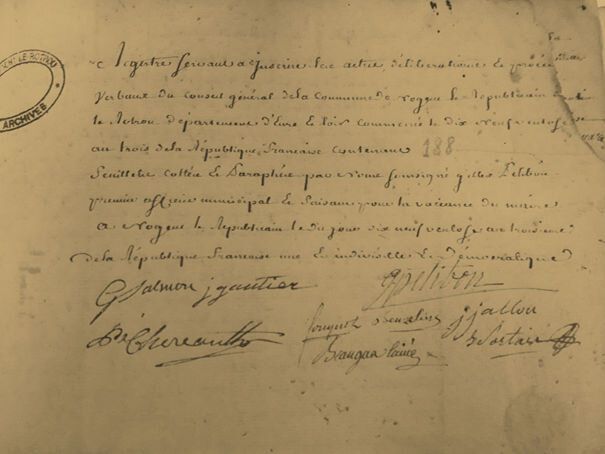 ENT LE ROTROU
ARCHIVES
Registre servant a Juscrire les actes, déliberations & procès
Verbaux du Conseil général de la Commune de Nogent le Républicain
le Rotrou département d'Eure & loir commencé le dix neuf ventose
au trois de la République française contenant 188
feuillets cottés & Paraphés par Nous soussigné gilles Petibon
premier officier municipal & faisant pour la vacance du maire
A Nogent le Républicain le du jour dix neuf ventose an troisieme
de la République française une & indivisible & Démocratique
G Salmon j gautier gpetibon
fouquet jjallon
Beaugas l'ainé